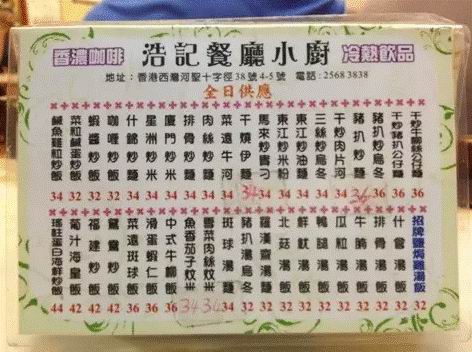 香濃咖啡 浩記餐廳小廚 冷熱飲品
地址：香港西灣河聖十字徑38號4-5號 電話：2568 3838
全日供應
干炒牛柳絲公仔麵 36
干炒豬扒公仔麵 36
豬扒炒烏冬 36
豬扒炒麵 36
干炒肉片河 34
三絲炒烏冬 34
東江炒油麵 34
東江炒米粉 34
馬來炒貴刁 34
干燒伊麵 34
菜遠牛河 32
肉絲炒麵 34
排骨炒麵 34
廈門炒米 34
星洲炒米 34
什錦炒麵 34
咖喱炒飯 32
蝦醬炒飯 32
粒鹹蛋炒飯 34
鹹魚雞粒炒飯 34
招牌鹽焗雞湯飯 32
什會湯飯 32
排骨湯飯 32
牛腩湯飯 32
瓜粒湯飯 32
鴨腿湯飯 32
鮮魷湯飯 32
北菇湯飯 32
羅漢齋湯麵 32
豬扒湯烏冬 32
斑球湯麵 34
雪菜肉絲炆米 34
魚香茄子炆米 34
中式牛柳飯 36
滑蛋蝦仁飯 36
菜遠斑球飯 36
鴛鴦炒飯 42
福建炒飯 42
葡汁海皇飯 42
瑤柱蛋白海鮮炒飯 44